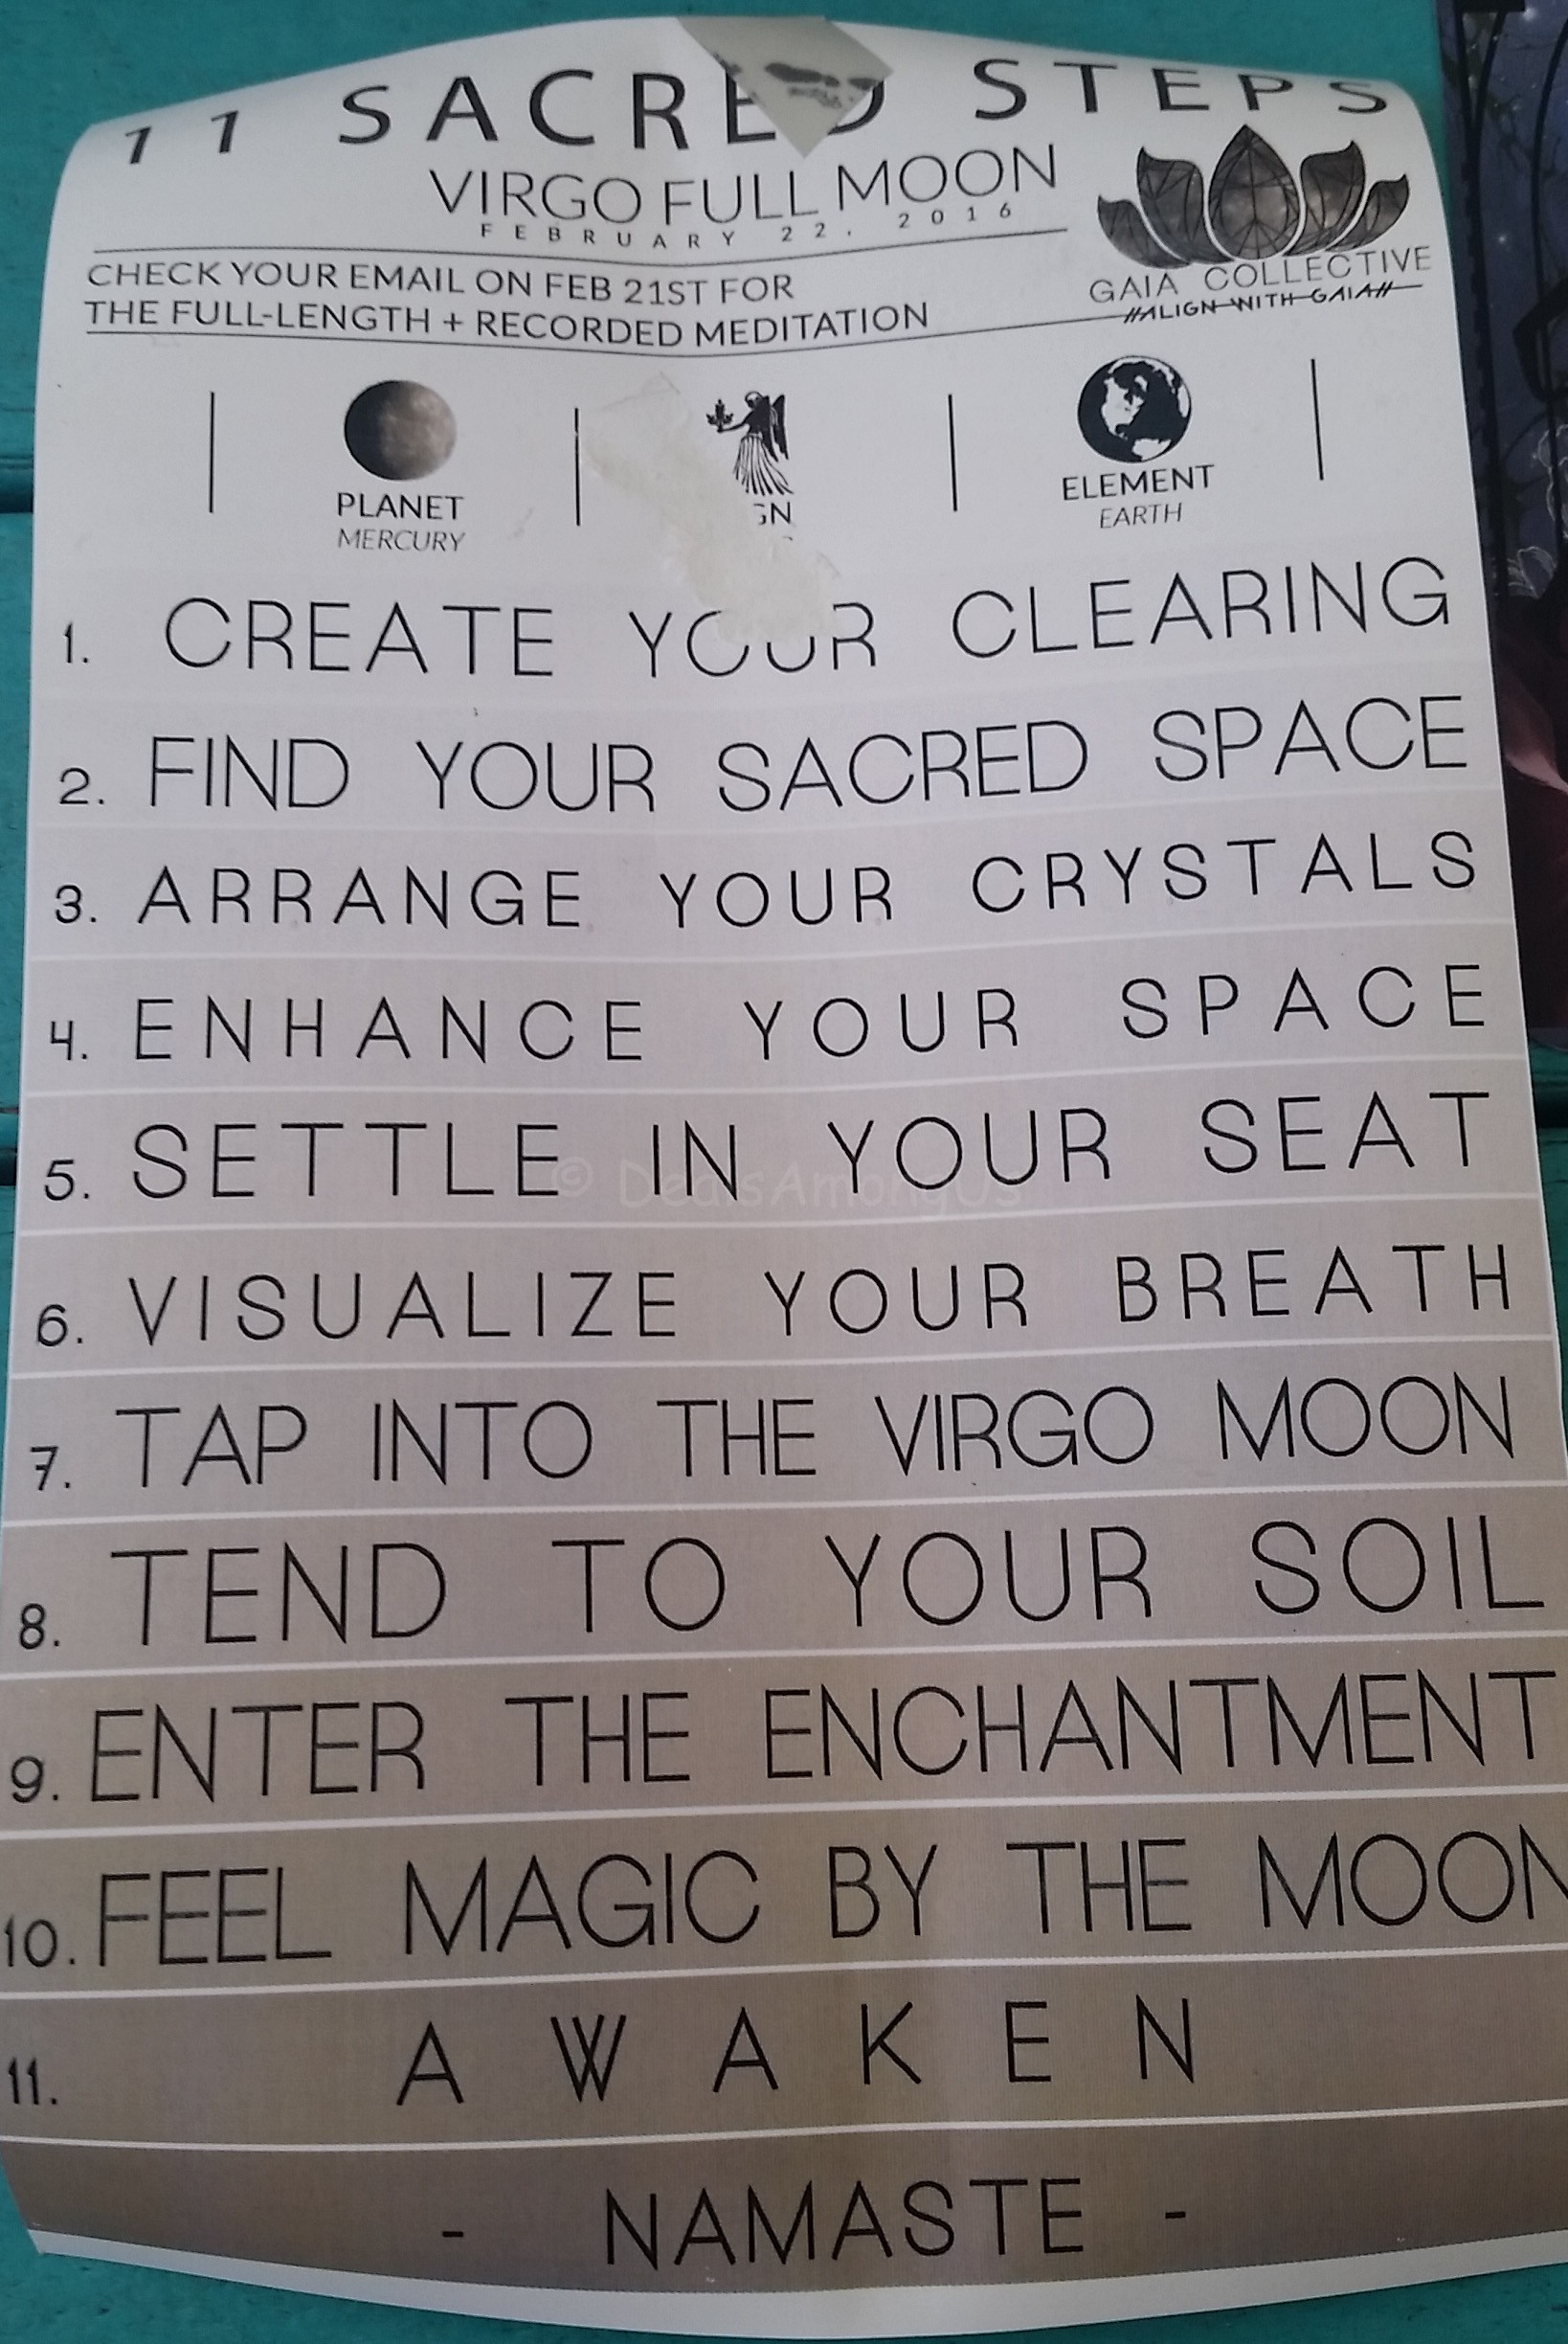 11 SACRED STEPS
VIRGO FULL MOON
FEBRUARY 22, 2016
CHECK YOUR EMAIL ON FEB 21ST FOR
THE FULL-LENGTH + RECORDED MEDITATION
GAIA COLLECTIVE
//ALIGN WITH GAIA//
PLANET
MERCURY
GN
ELEMENT
EARTH
1. CREATE YOUR CLEARING
2. FIND YOUR SACRED SPACE
3. ARRANGE YOUR CRYSTALS
4. ENHANCE YOUR SPACE
5. SETTLE IN YOUR SEAT
© DealsAmongUs
6. VISUALIZE YOUR BREATH
7. TAP INTO THE VIRGO MOON
8. TEND TO YOUR SOIL
9. ENTER THE ENCHANTMENT
10. FEEL MAGIC BY THE MOON
11. AWAKEN
- NAMASTE -